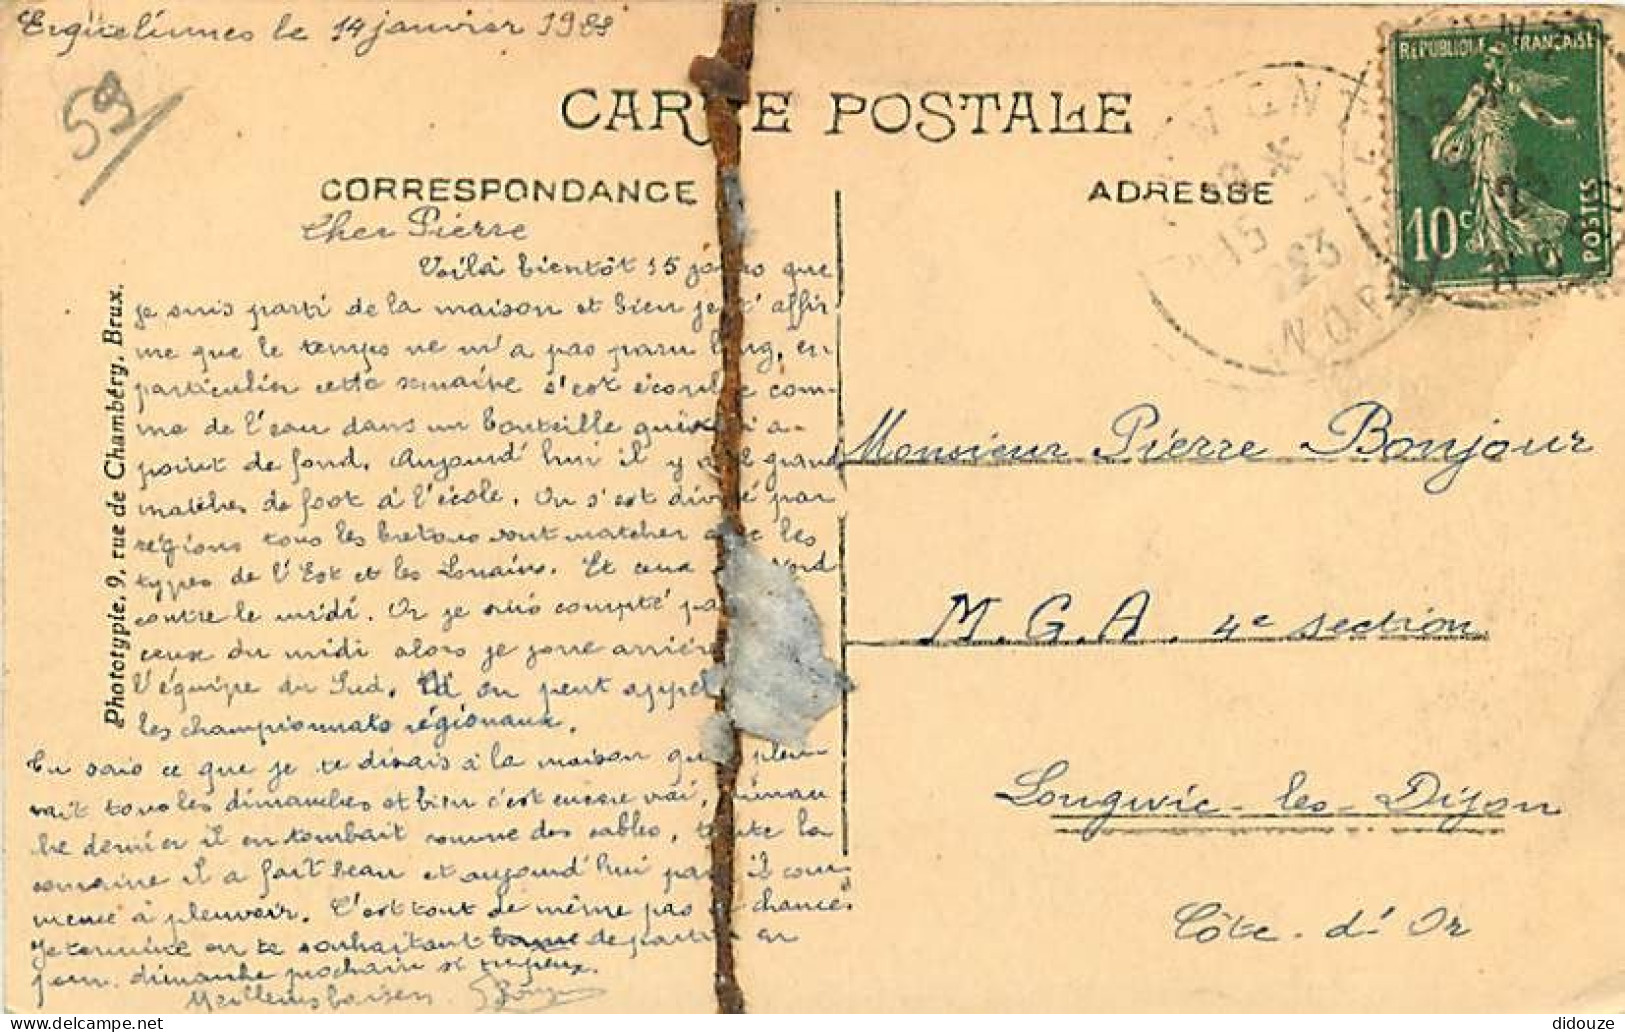 Erquelinnes le 14 janvier 1923
59
CARTE POSTALE
CORRESPONDANCE
ADRESSE
REPUBLIQUE FRANÇAISE
10c
POSTES
15 -1
23
NORD
Phototypie, 9, rue de Chambéry, Brux.
Cher Pierre
Voilà bientôt 15 jours que
je suis parti de la maison et bien je t'affir
me que le temps ne m'a pas paru long, en
particulier cette semaine s'est écoulée com-
me de l'eau dans un bouteille qui n'a
point de fond. Aujourd'hui il y a grand
matches de foot à l'école. On s'est divisé par
régions tous les bretons vont matcher avec les
types de l'Est et les Lorrains. Et ceux Nord
contre le midi. Or je suis compté pa
ceux du midi alors je joue arrière
l'équipe du Sud. on peut appel
les championnats régionaux.
Tu sais ce que je te disais à la maison qu' pleu-
vait tous les dimanches et bien c'est encore vrai,
che dernier il en tombait comme des sables, toute la
semaine il a fait beau et aujourd'hui il com
mence à pleuvoir. C'est tout de même pas chance.
Je termine en te souhaitant de partir en
dimanche prochain
Meilleurs baisers
Monsieur Pierre Bonjour
M.G.A. 4e section
Longvic-les-Dijon
Côte-d'Or
didouze